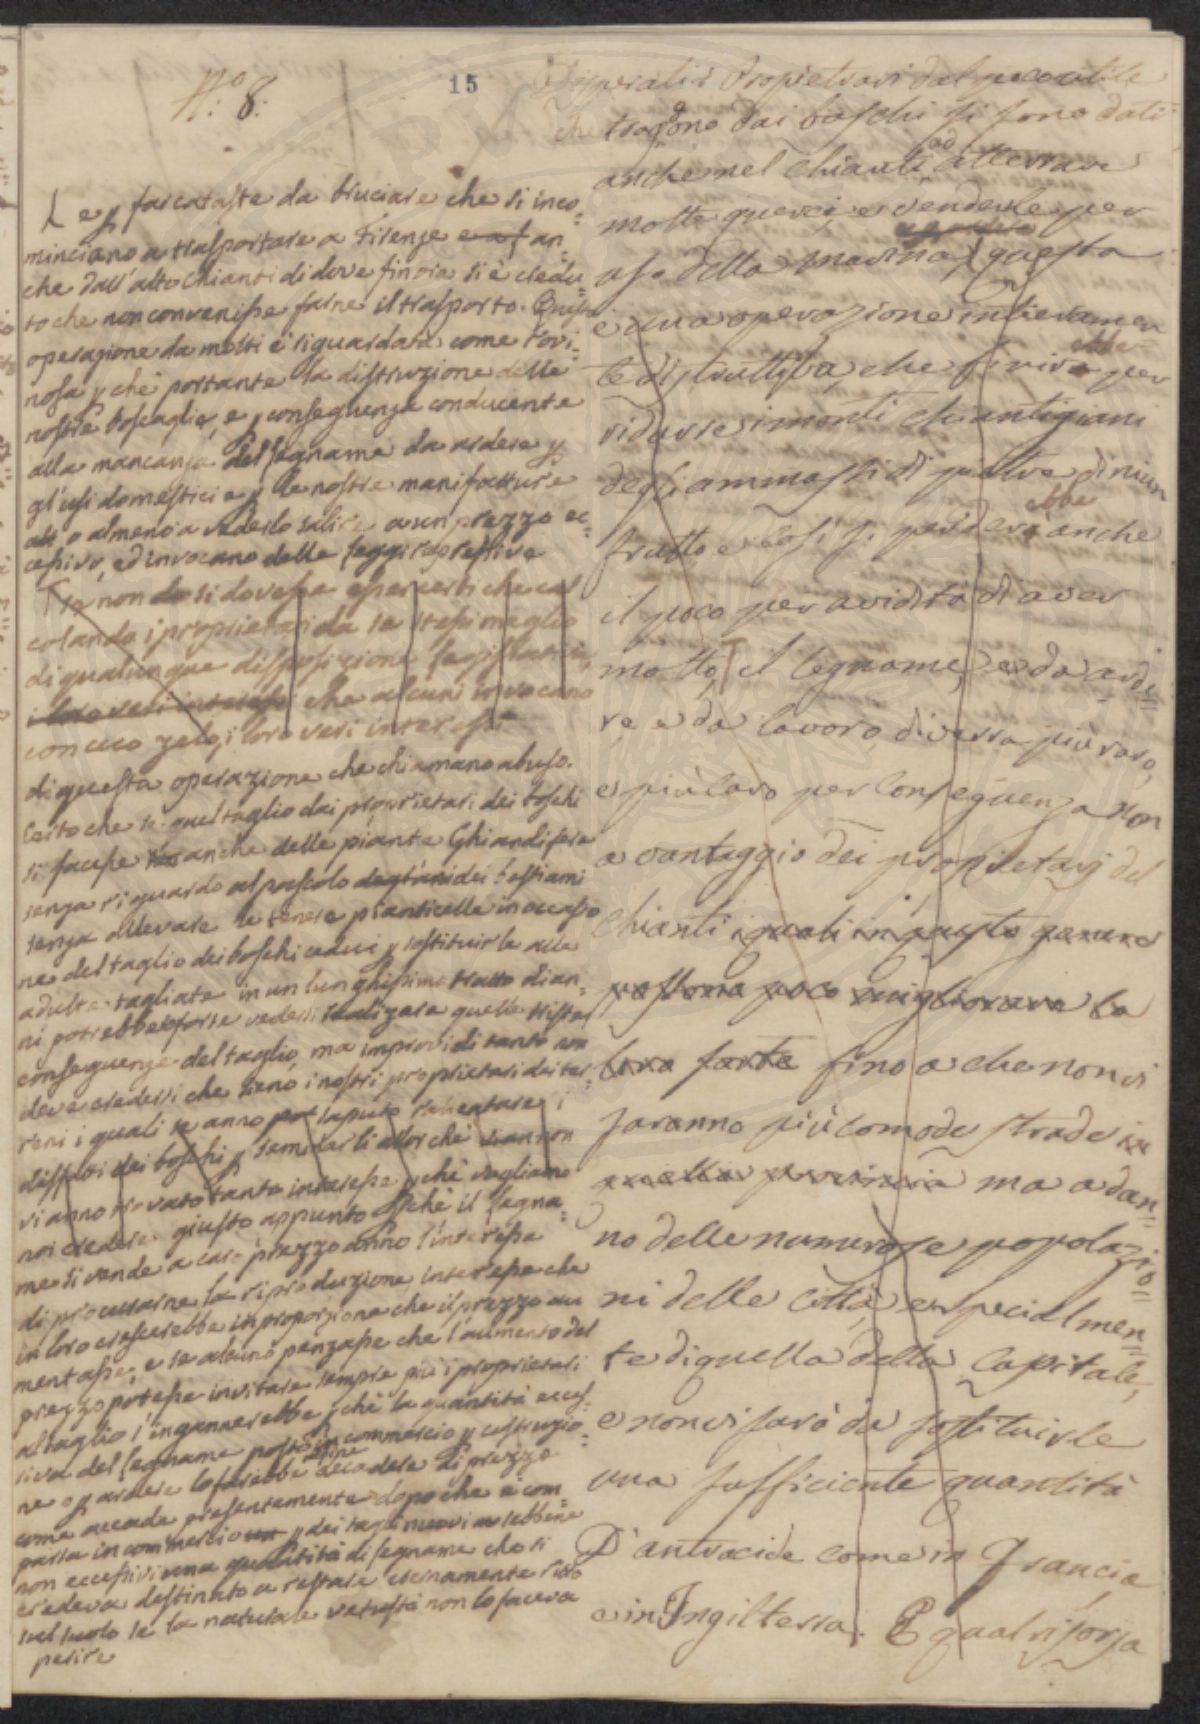 N.° 8.
15
Le fascataste da bruciare che si inco=
minciano a trasportare a Firenze e a f an=
che dall'alto Chianti di dove finora si è credu=
to che non convenisse farne il trasporto. Questa
operazione da molti è riguardata come rovi=
nosa p chè portante la distruzione delle
nostre boscaglie, e p conseguenza conducente
alla mancanza del legname da ardere p
gl'usi domestici e p le nostre manifatture
o almeno a vederlo salire a un prezzo ec=
cessivo, ed invocano delle leggi repressive
se non si dovesse esser certi che cal
colando i proprietari da se stessi meglio
di qualunque disposizione legislativa,
i loro veri interessi che alcuni invocano
con cieco zelo i loro veri interessi
di questa operazione che chiamano abuso.
Certo che se quel taglio dai proprietari dei boschi
si facesse anche delle piante Ghiandifere
senza riguardo al pascolo degl'ani dei bestiami
senza allevare le tenere pianticelle in occasio
ne del taglio dei boschi cedui p sostituirle alle
adulte tagliate in un lunghissimo tratto di an=
ni potrebbesi forse vedersi realizare quelle triste
conseguenze del taglio, ma improvidi tanto non
deve credersi che sieno i nostri proprietari dei ter=
reni i quali se anno saputo i
dissodi dei boschi p seminarli allor chè
vi anno trovato tanto interesse p chè vogliamo
noi credere giusto appunto p chè il legna=
me si vende a caro prezzo anno l'interesse
di procurarne la riproduzione, interesse che
in loro crescerebbe in proporzione che il prezzo au
mentasse; e se alcuno penzasse che l'aumento del
prezzo potesse invitare sempre più i proprietari
al taglio s'ingannerebbe p chè la quantità ecces=
siva del legname posto in commercio p costruzio=
ne o p ardere lo farebbe alfine decadere di prezzo
come accade presentemente dopo che è com=
parsa in commercio p dei tagli nuovi sebbene
non eccessivi una quantità di legname che si
credeva destinato a restare eternamente ritto
sul suolo se la naturale vetustà non lo faceva
perire
Propietrari dal poco utile
che traggono dai boschi si sono dati
anche nel Chianti ad atterrare
molte querci, e venderle per
uso della marina, questa
è una operazione intieramen
te distruttiva, che finirebbe per
ridurre i monti chiantigiani
degli ammassi di pietre di niun
frutto e così si perderebbe anche
il poco per avidità di aver
molto, il legname, e da arde=
re e da lavoro diverrà più raro,
e più caro per conseguenza non
a vantaggio dei proprietarj del
Chianti i quali in questo genere
possono poco migliorare la
loro sorte fino a che non vi
saranno più comode strade in
quella provincia ma a dan=
no delle numerose popolazio=
ni delle città, e specialmen=
te di quella della Capitale,
e non vi sarà da sostituirle
una sufficiente quantità
D'antracide come in Francia
e in Ingilterra. E qual risorsa